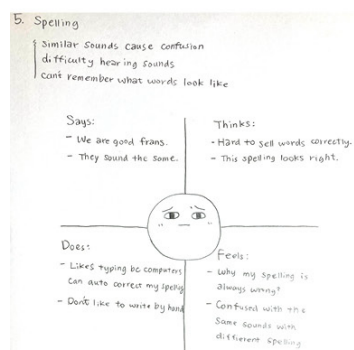 5. Spelling
Similar sounds cause confusion
difficulty hearing sounds
can't remember what words look like
Says:
- We are good frans.
- They sound the same.
Thinks:
- Hard to sell words correctly.
- This spelling looks right.
Does:
- Likes typing bc computers
can auto correct my spelling
- Don't like to write by hand
Feels:
- Why my spelling is
always wrong?
- Confused with the
same sounds with
different spelling